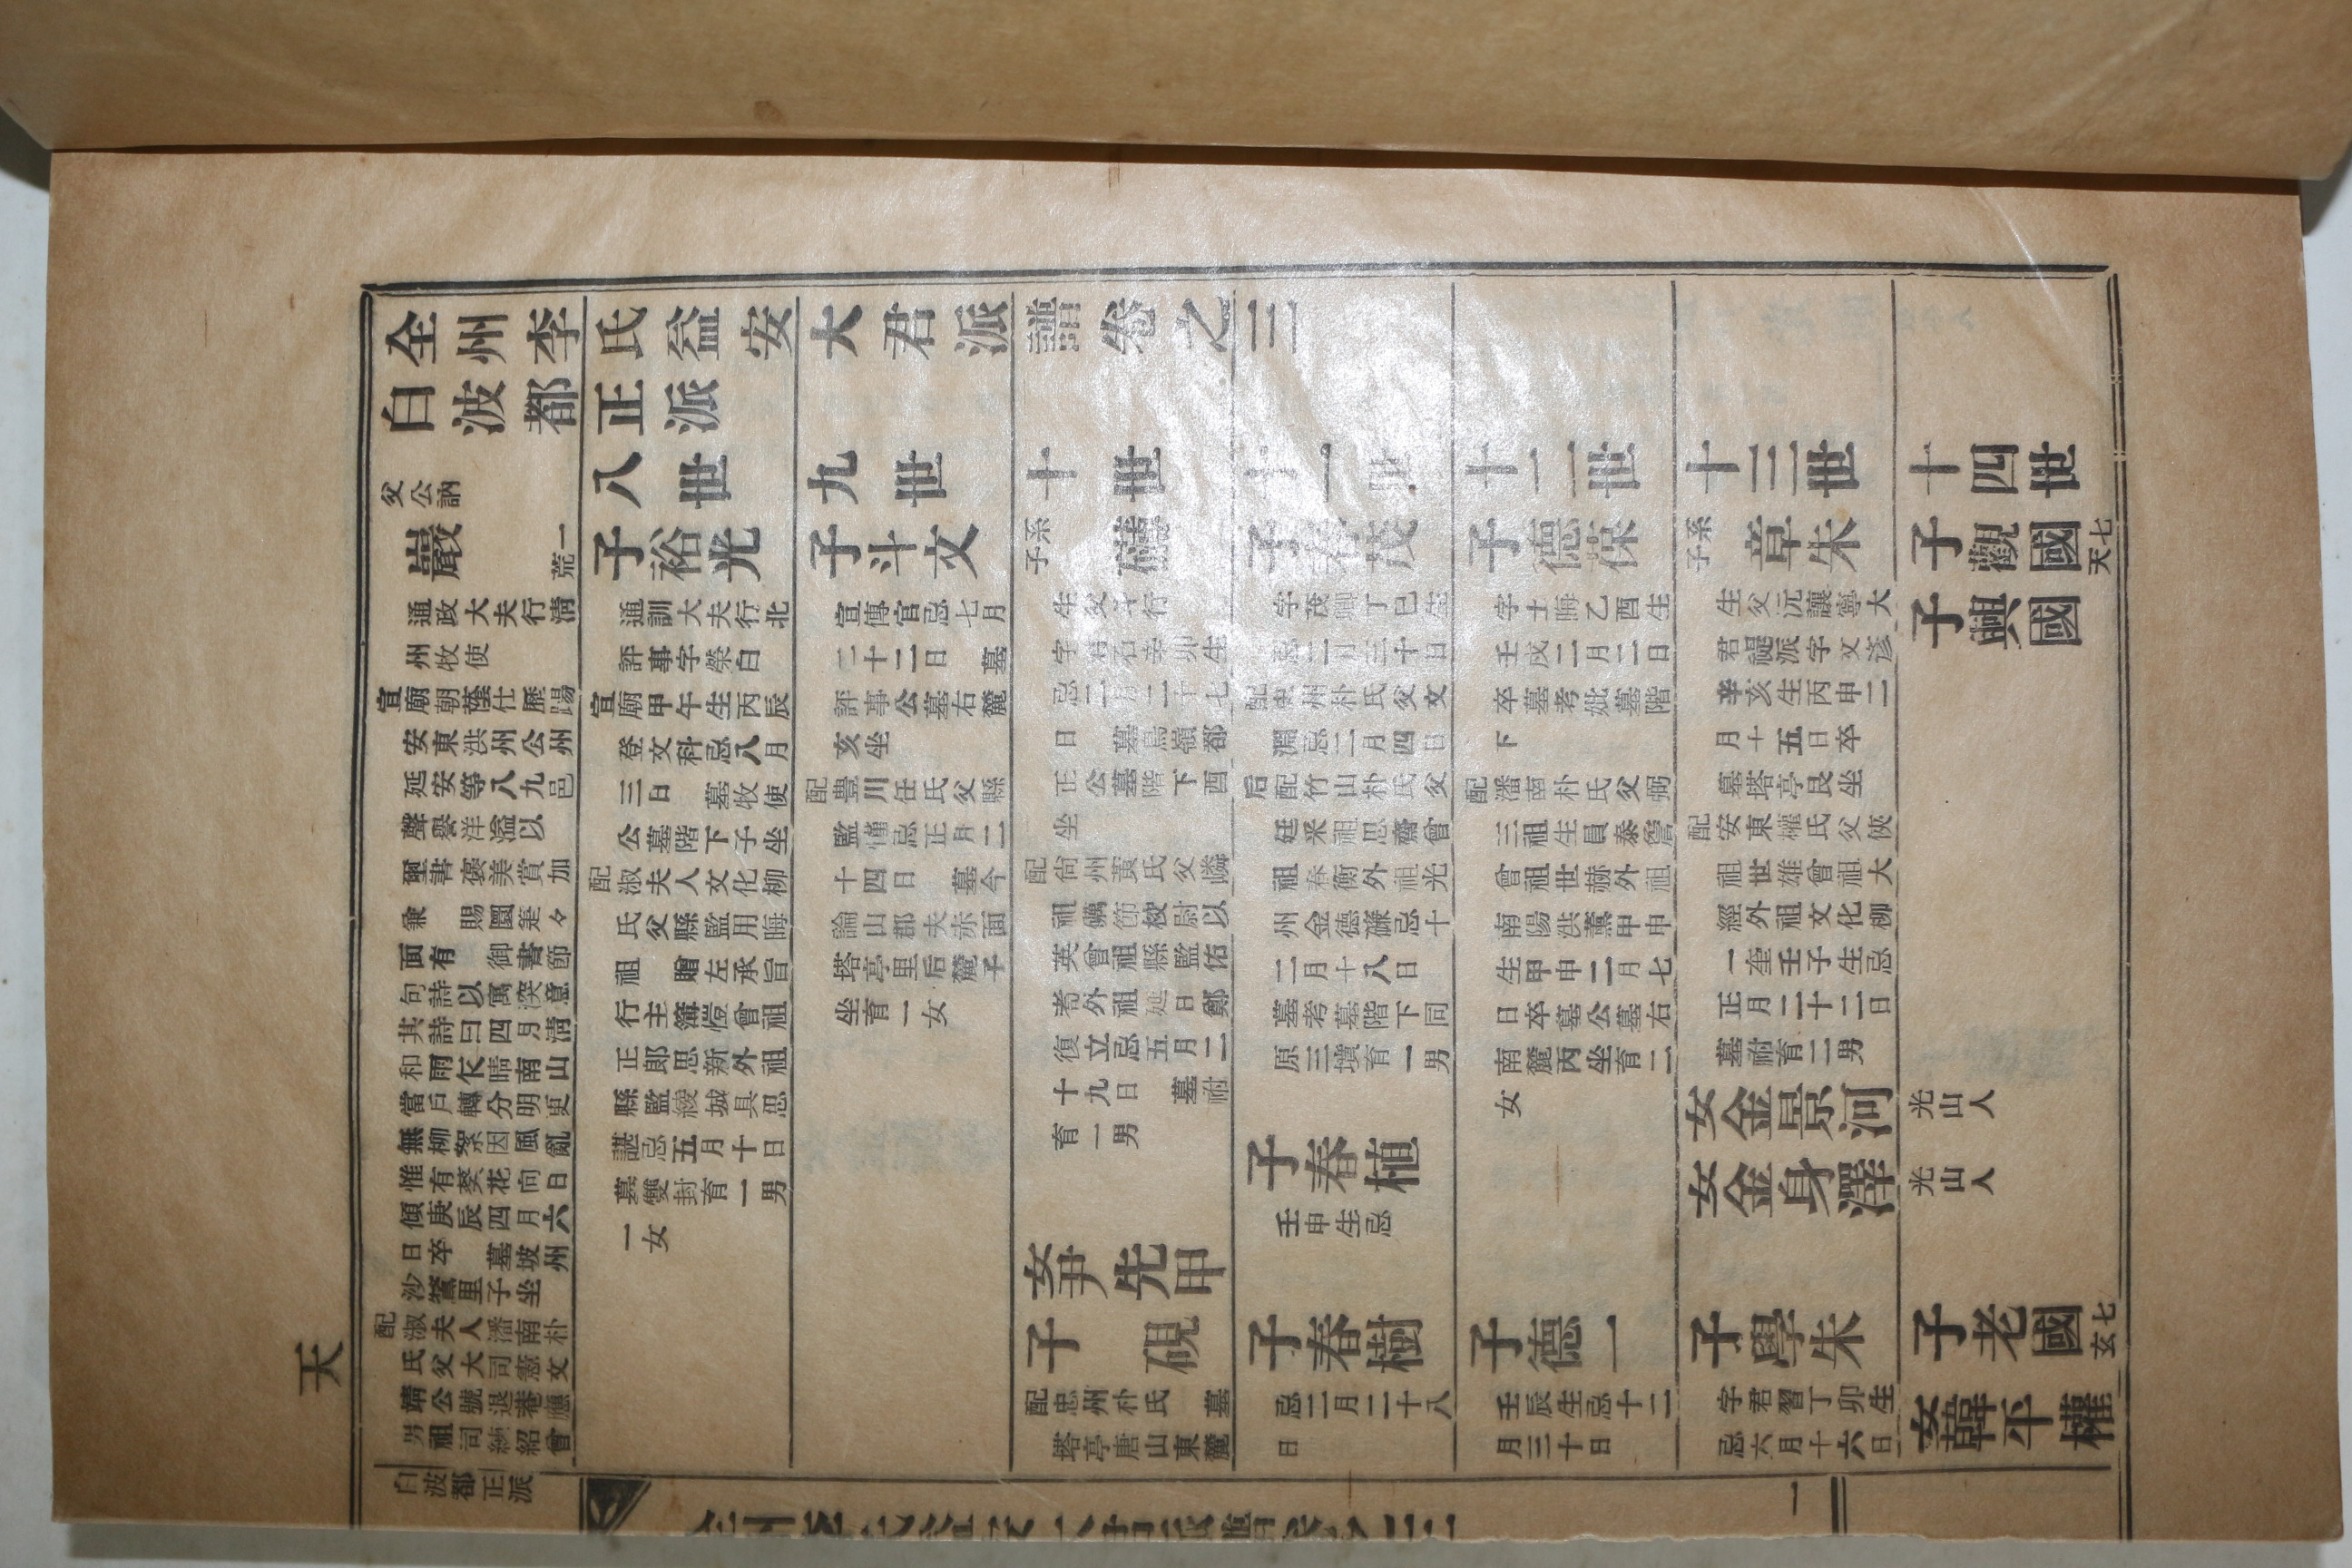 天
全州李氏益安大君派譜卷之三
白波都正派
父公訥
巖
一荒
通政大夫行淸
州牧使
宣廟朝蔭仕歷踢
安東洪州公州
延安等八九邑
聲譽洋溢以
璽書褒美賞加
兼 賜圜箑々
面有 御書節
句詩以寓深意
其詩曰四月淸
和雨乍晴南山
當戶轉分明更
無柳絮因風亂
惟有葵花向日
傾庚辰四月六
日卒 墓坡州
沙鶩里子坐
配淑夫人潘南朴
氏父大司憲文
靖公號退菴應
男祖司諫紹曾
八世
子裕光
通訓大夫行北
評事字榮白
宣廟甲午生丙辰
登文科忌八月
三日 墓牧使
公墓階下子坐
配淑夫人文化柳
氏父縣監用晦
祖 贈左承旨
行主簿愷曾祖
正郞思新外祖
縣監綾城具思
諶忌五月十日
墓雙封育一男
一女
九世
子斗文
宣傳官忌七月
二十二日 墓
評事公墓右麓
亥坐
配豊川任氏父縣
監慬忌正月二
十四日 墓今
論山郡夫赤面
塔亭里后麓子
坐育一女
十世
系子
生父斗行
字君石辛卯生
忌二月二十七
日 墓鳥嶺都
正公墓階下酉
坐
配尙州黃氏父嶙
祖礪節校尉以
英曾祖縣監佑
耈外祖延日鄭
復立忌五月二
十九日 墓祔
育一男
女尹先甲
子硯
配忠州朴氏 墓
塔亭唐山東麓
十一世
子春茂
字茂卿丁巳生
忌二月三十日
配忠州朴氏父文
淵忌二月四日
后配竹山朴氏父
廷釆祖思齋曾
祖春衡外祖光
州金德䃥忌十
二月十八日
墓考墓階下同
原三墳育一男
子春植
壬申生忌
子春樹
忌二月二十八
日
十二世
子德葆
字士晦乙酉生
壬戌二月二日
卒墓考妣墓階
下
配潘南朴氏父弼
三祖生員泰簷
曾祖世赫外祖
南陽洪薰甲申
生甲申二月七
日卒墓公墓右
南麓丙坐育二
女
子德一
壬辰生忌十二
月三十日
十三世
系子
章朱
生父沅讓寧大
君禔派字文彦
辛亥生丙申二
月十五日卒
墓塔亭艮坐
配安東權氏父俠
祖世雄曾祖大
經外祖文化柳
一奎壬子生忌
正月二十二日
墓祔育二男
女金景河
女金身澤
子學朱
字君習丁卯生
忌六月十六日
十四世
子觀國
七天
子興國
光山人
光山人
子老國
七玄
女韓平權
白波都正派
全州李氏益安大君派譜卷之三
一